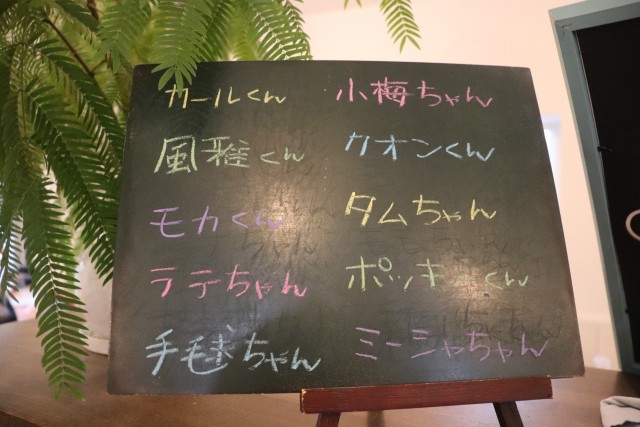 カールくん
風雅くん
モカくん
ラテちゃん
手毬ちゃん
小梅ちゃん
クオンくん
タムちゃん
ポッキーくん
ミーシャちゃん